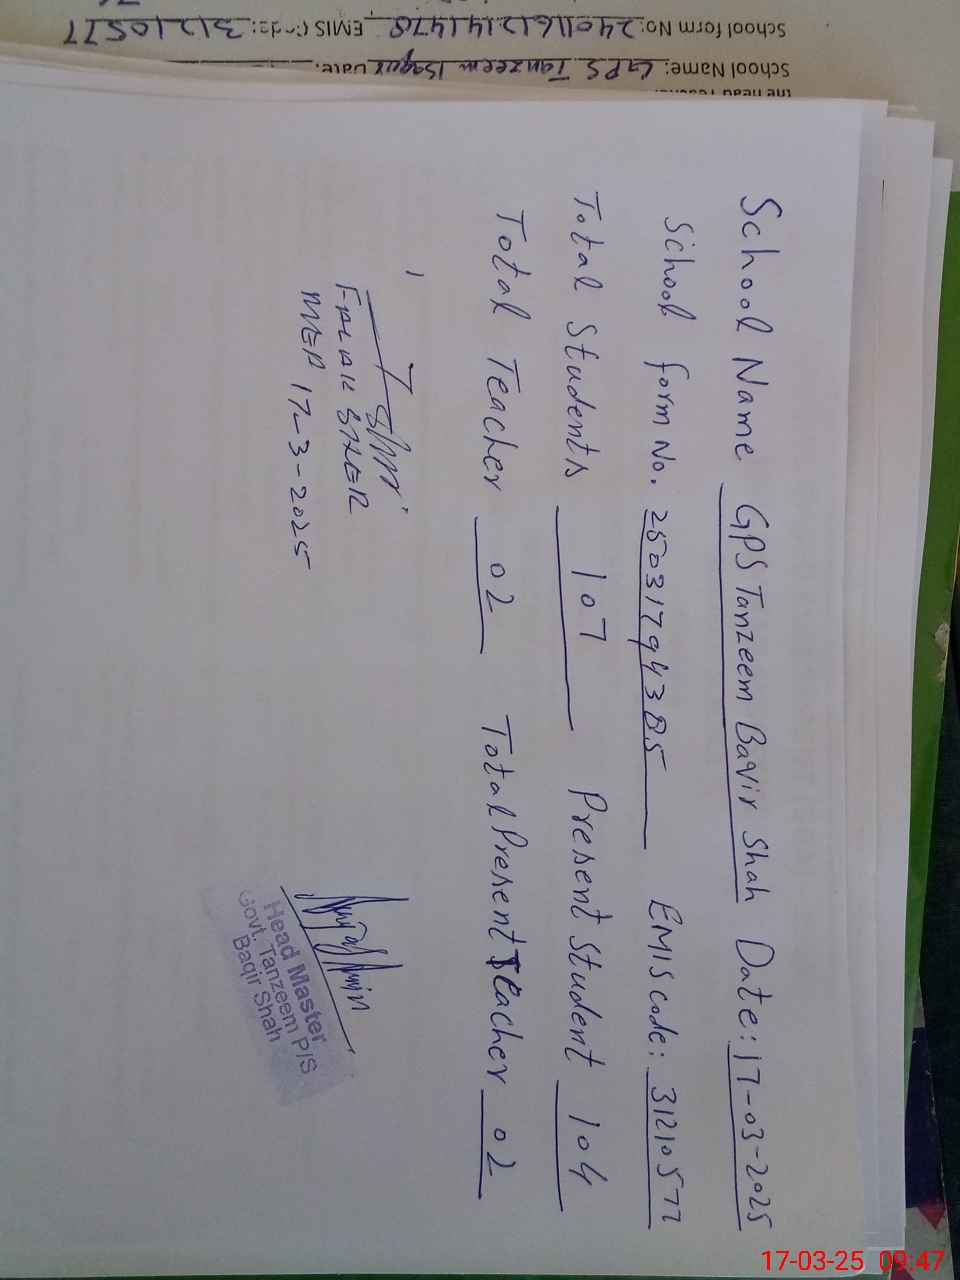 School Name GPS Tanzeem Baqir Shah Date: 17-03-2025
School form No. 25031794385 EMIS code: 31210577
Total Students 107 Present Student 104
Total Teacher 02 Total Present Teacher 02
MEA 17-3-2025
Head Master
Govt. Tanzeem P/S
Baqir Shah
School Name: GPS Tanzeem Date:
School form No: EMIS Code: 31210577
17-03-25 09:47